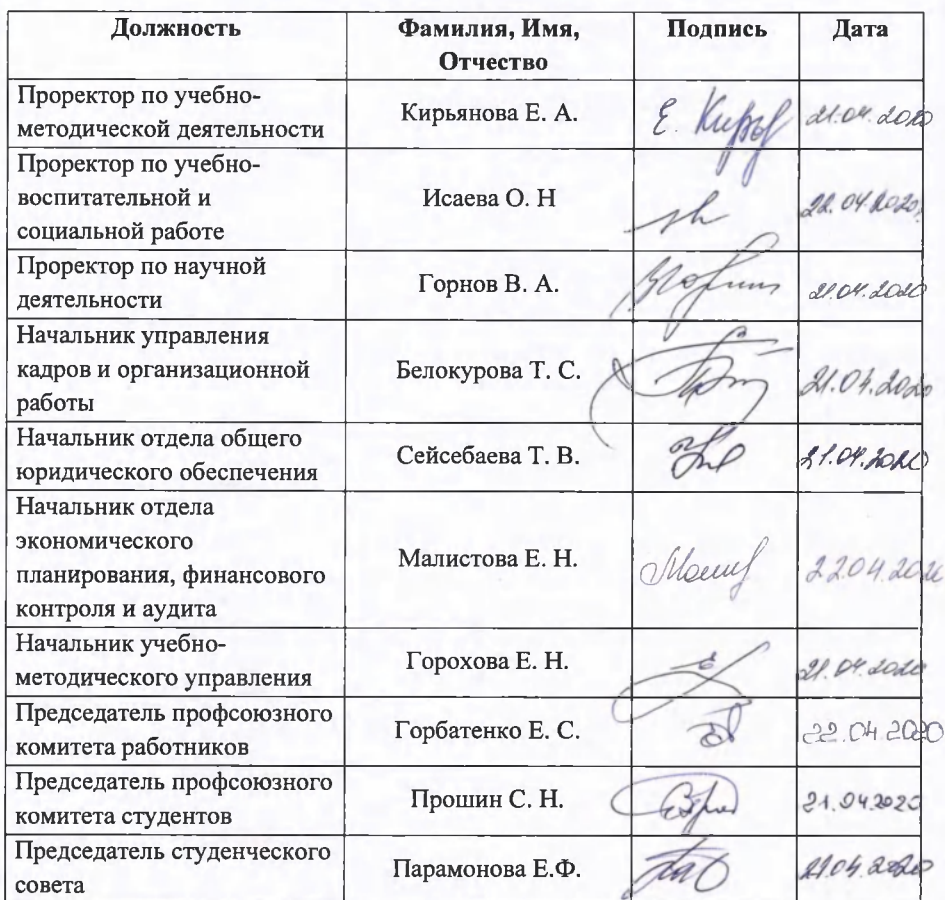 Должность Фамилия, Имя, Подпись Дата
Отчество
Проректор по учебно-
методической деятельности Кирьянова Е. А. 21.04.2020
Проректор по учебно-
воспитательной и Исаева О. Н 22.04.2020
социальной работе
Проректор по научной
деятельности Горнов В. А. 21.04.2020
Начальник управления
кадров и организационной Белокурова Т. С. 21.04.2020
работы
Начальник отдела общего
юридического обеспечения Сейсебаева Т. В. 21.04.2020
Начальник отдела
экономического
планирования, финансового Малистова Е. Н. 22.04.2020
контроля и аудита
Начальник учебно-
методического управления Горохова Е. Н. 21.04.2020
Председатель профсоюзного
комитета работников Горбатенко Е. С. 22.04.2020
Председатель профсоюзного
комитета студентов Прошин С. Н. 21.04.2020
Председатель студенческого
совета Парамонова Е.Ф. 21.04.2020